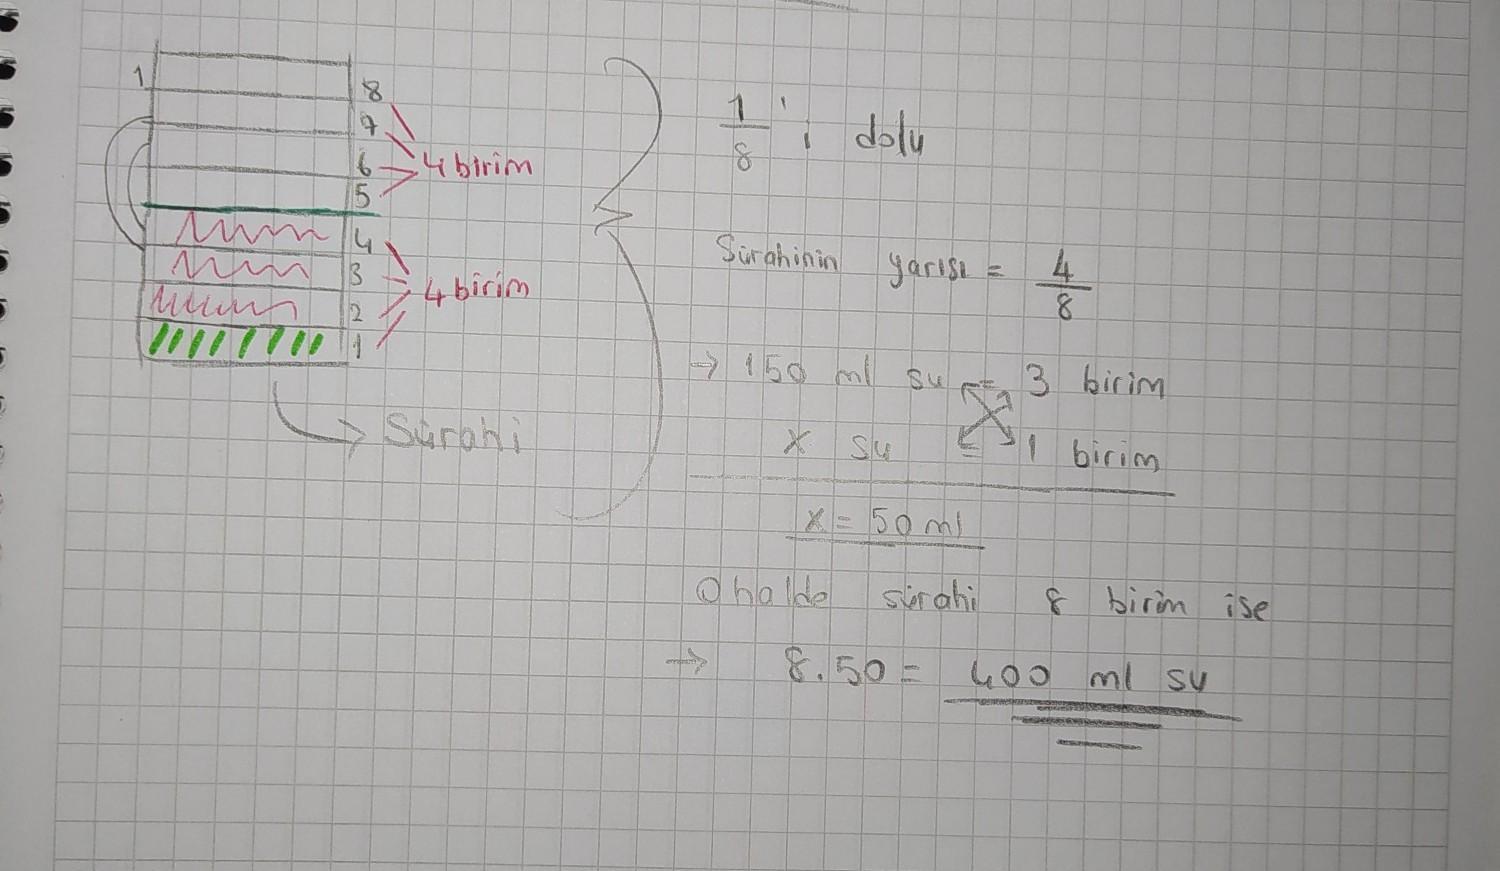 1
8
7
6
5
4 birim
4
3
2
1
4 birim
Sürahi
1/8 'i dolu
Sürahinin yarısı = 4/8
→ 150 ml su = 3 birim
x su = 1 birim
x = 50 ml
O halde sürahi 8 birim ise
→ 8.50 = 400 ml su